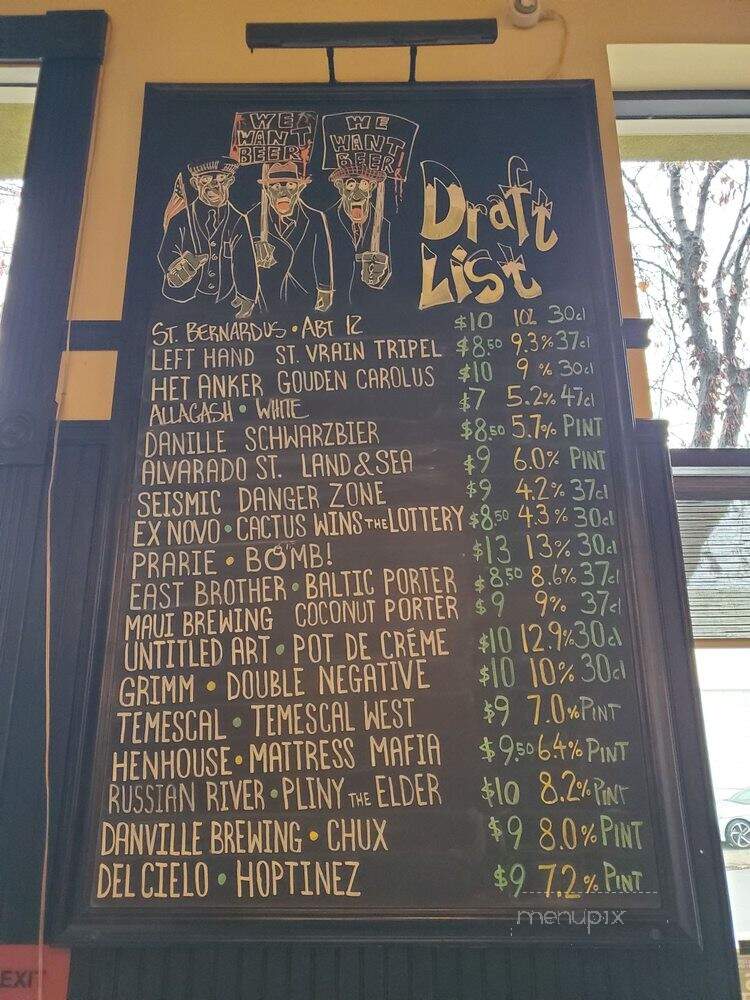 WE WANT BEER
WE WANT BEER!
Draft
List
ST. BERNARDUS • ABT 12 $10 10% 30cl
LEFT HAND ST. VRAIN TRIPEL $8.50 9.3% 37cl
HET ANKER GOUDEN CAROLUS $10 9% 30cl
ALLAGASH • WHITE $7 5.2% 47cl
DANILLE SCHWARZBIER $8.50 5.7% PINT
ALVARADO ST. LAND & SEA $9 6.0% PINT
SEISMIC DANGER ZONE $9 4.2% 37cl
EX NOVO • CACTUS WINS THE LOTTERY $8.50 4.3% 30cl
PRARIE • BOMB! $13 13% 30cl
EAST BROTHER • BALTIC PORTER $8.50 8.6% 37cl
MAUI BREWING COCONUT PORTER $9 9% 37cl
UNTITLED ART • POT DE CRÉME $10 12.9% 30cl
GRIMM • DOUBLE NEGATIVE $10 10% 30cl
TEMESCAL • TEMESCAL WEST $9 7.0% PINT
HENHOUSE • MATTRESS MAFIA $9.50 6.4% PINT
RUSSIAN RIVER • PLINY THE ELDER $10 8.2% PINT
DANVILLE BREWING • CHUX $9 8.0% PINT
DEL CIELO • HOPTINEZ $9 7.2% PINT
menupix
EXIT